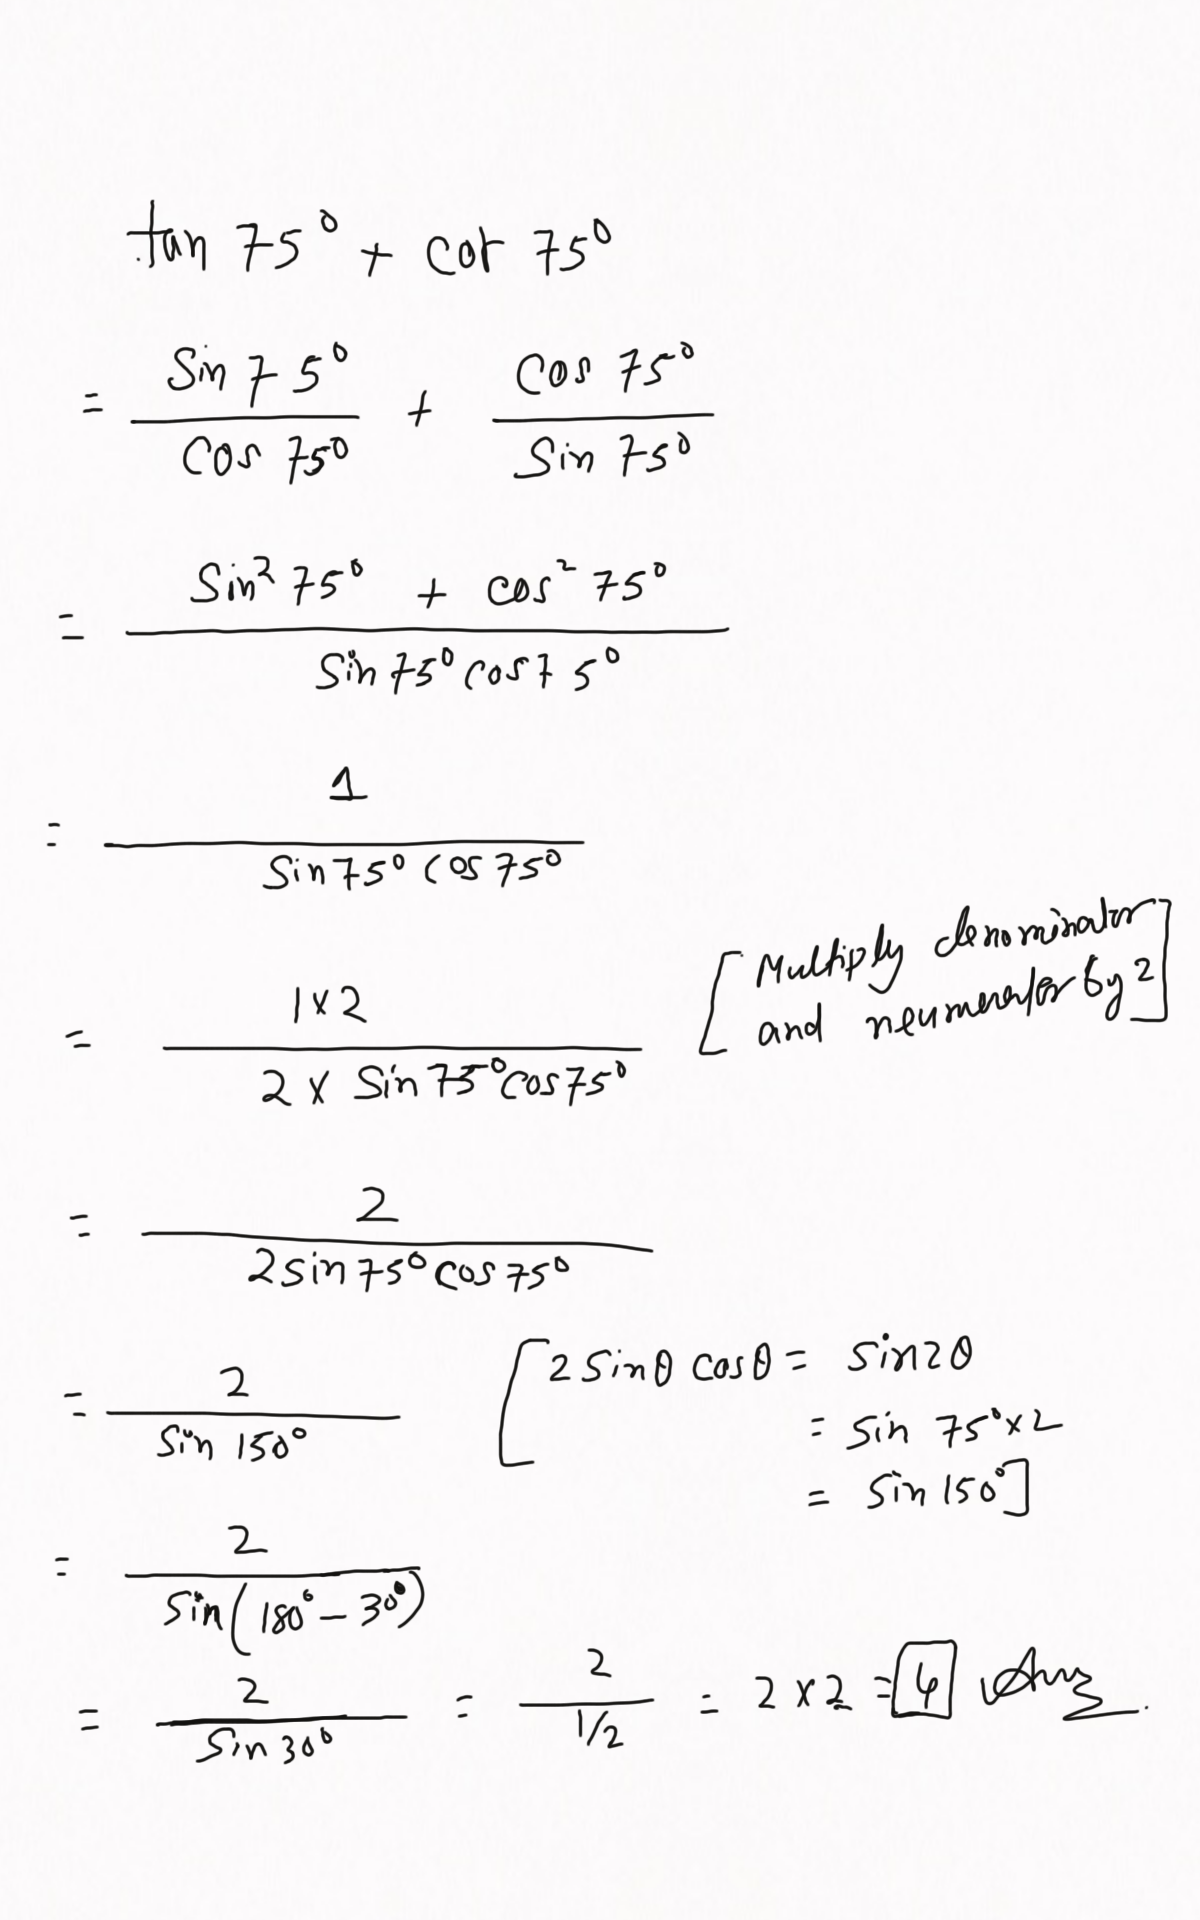 tan 75° + cot 75°
= Sin 75° / Cos 75° + Cos 75° / Sin 75°
= Sin² 75° + cos² 75° / Sin 75° cos 75°
= 1 / Sin 75° cos 75°
= 1 × 2 / 2 × Sin 75° cos 75° [Multiply denominator
and neumerator by 2]
= 2 / 2 sin 75° cos 75°
= 2 / Sin 150° [2 Sinθ cosθ = Sin2θ
= Sin 75° × 2
= Sin 150°]
= 2 / Sin(180° – 30°)
= 2 / Sin 30° = 2 / 1/2 = 2 × 2 = 4 Ans